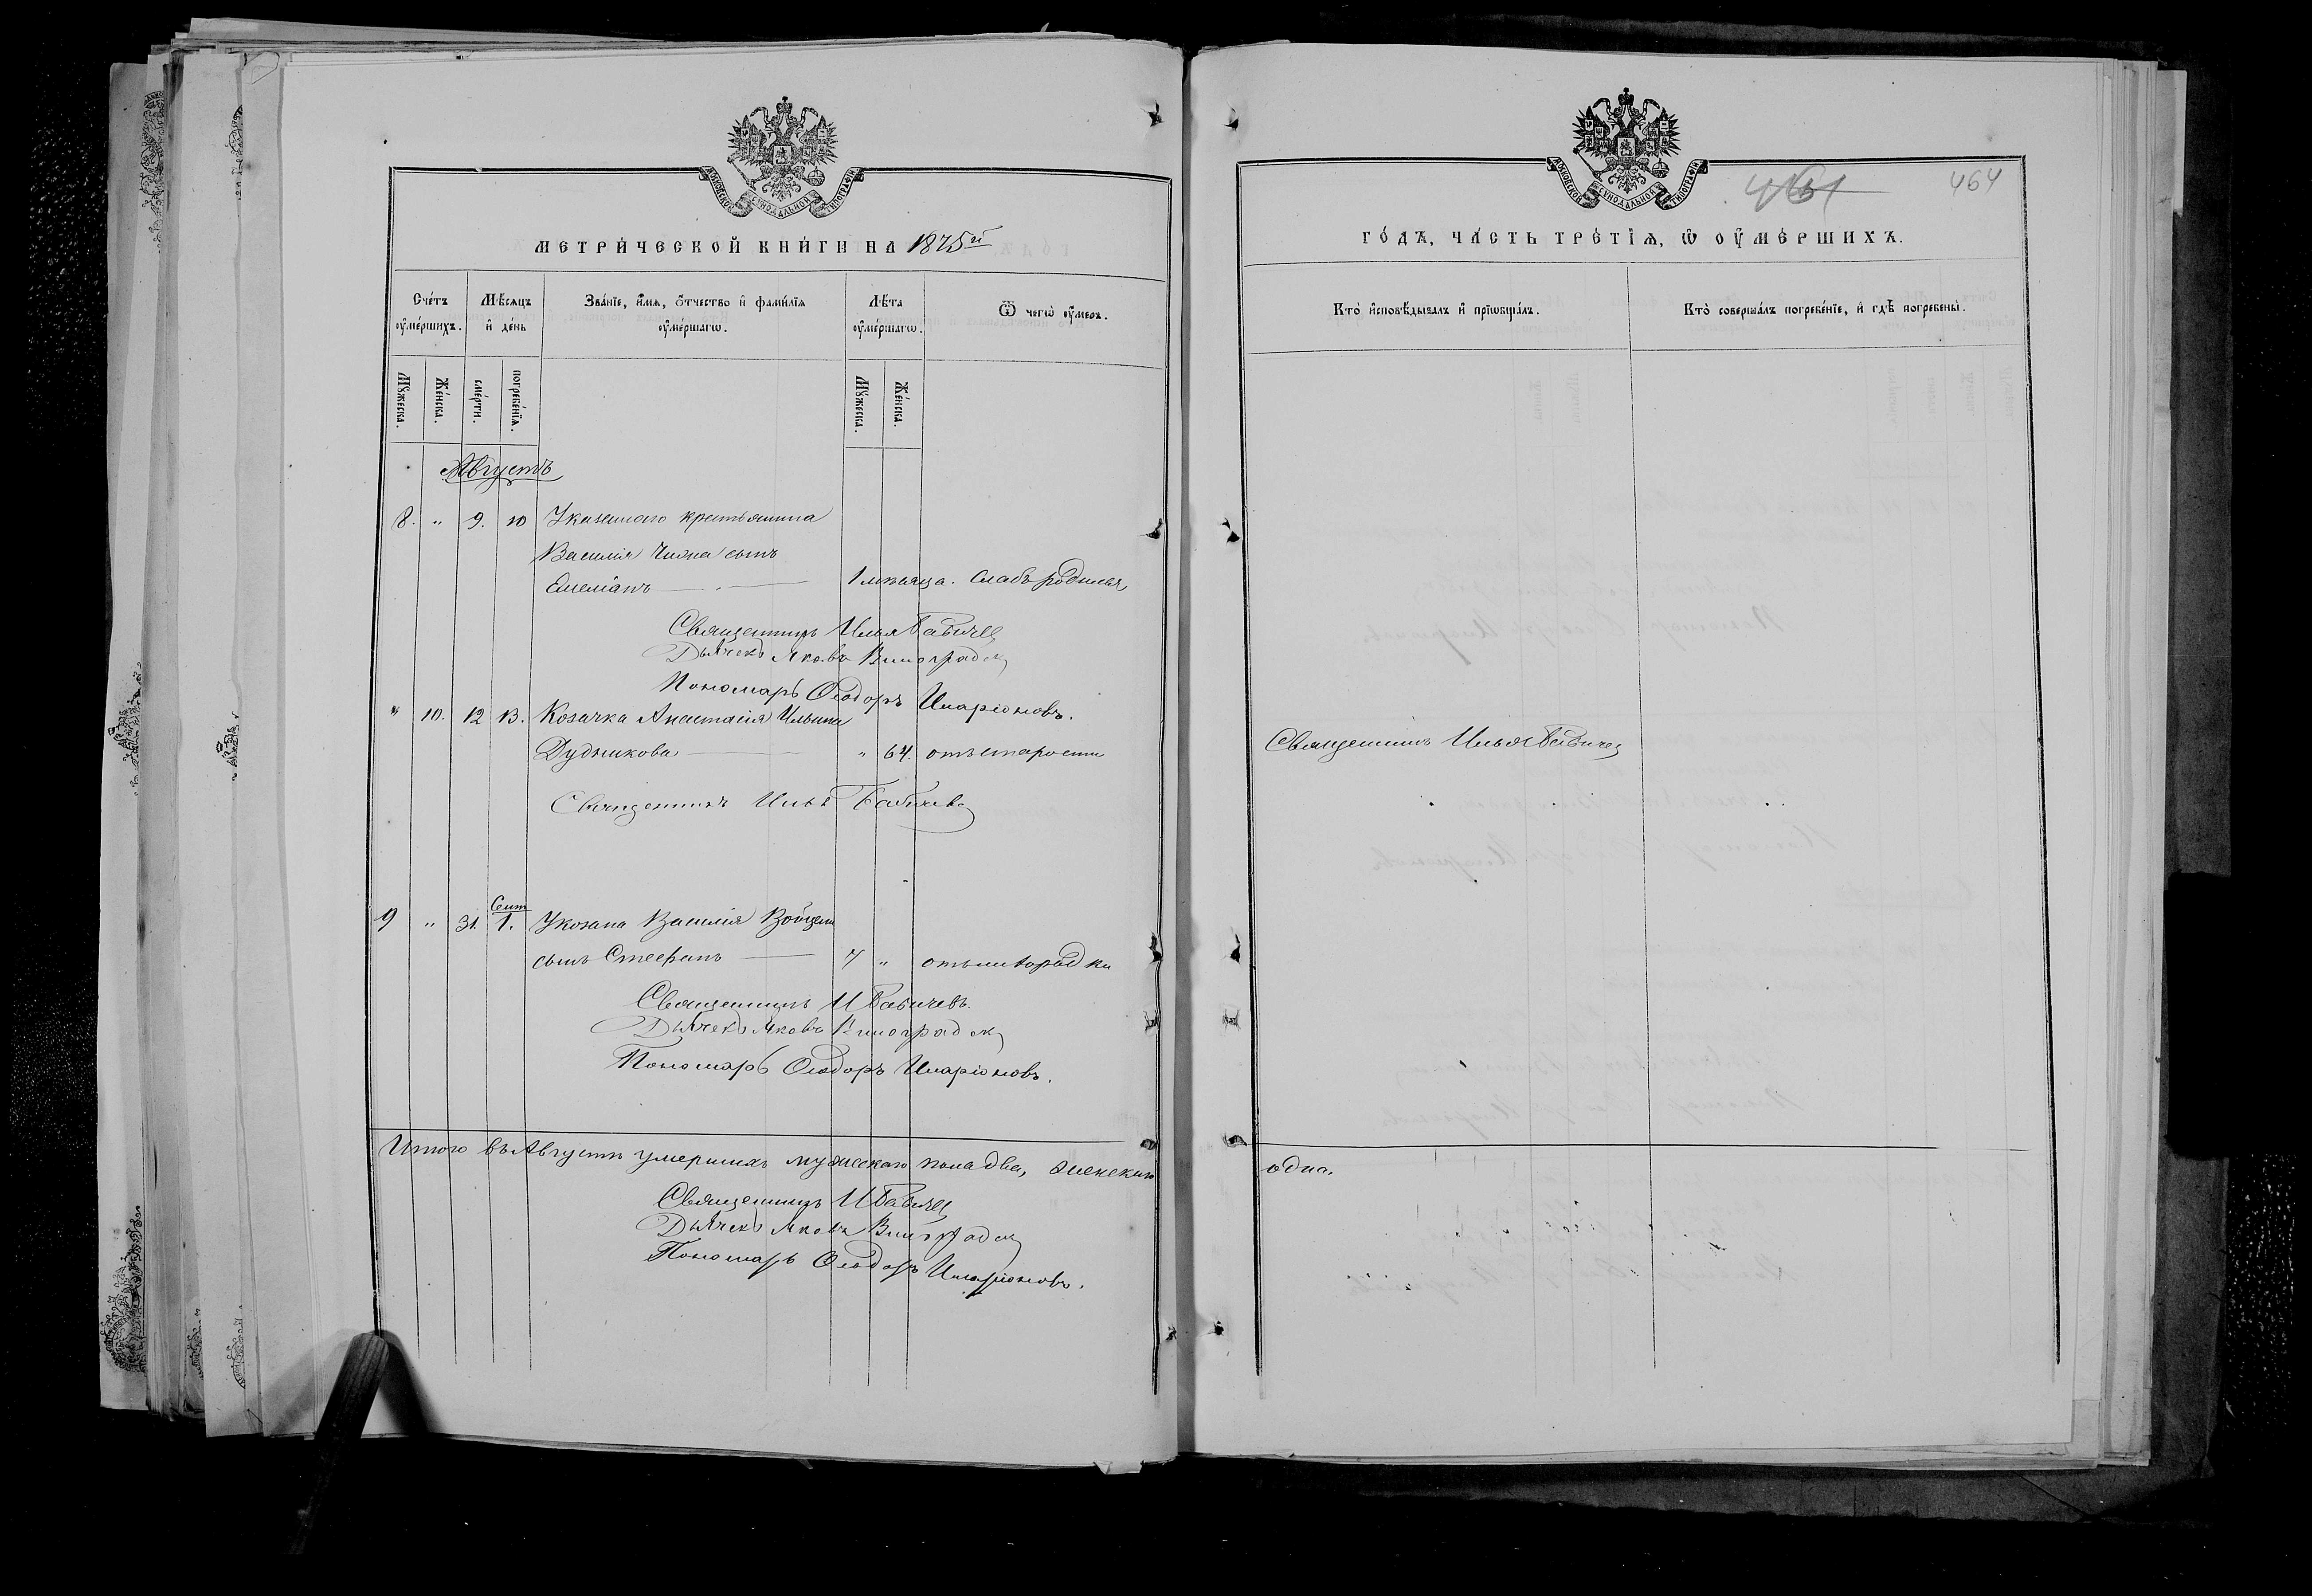 МОСКОВСКОЙ СѴНОДАЛЬНОЙ ТИПОГРАФІИ
МЕТРИ́ЧЕСКОЙ КНИ́ГИ НА 1875й
Сче́тъ ᲂу҆ме́ршихъ.
Мѣ́сяцъ и҆ де́нь
Зва́нїе, и҆́мѧ, ѻ҆́тчество и҆ фами́лїѧ ᲂу҆ме́ршагѡ.
Лѣ́та ᲂу҆ме́ршагѡ.
Ѿ чегѡ̀ ᲂу҆́меръ.
Мꙋ́жеска.
Же́нска.
сме́рти.
погребе́нїѧ.
Мꙋ́жеска.
Же́нска.
Августъ
8. " 9. 10 Указаннаго крестьянина
Василія сынъ
Емеліанъ 1 мѣсяца. слабъ родился
Священникъ Илья Бабичев
Дьячекъ Яковъ Виноградск
Пономарь Ѳеодоръ Иларіоновъ.
" 10. 12 13. Козачка Анастасія Ильина
Дудникова " 64. отъ старости
Священникъ Илья Бабичев
9 " 31. Сент 1. У козака Василія
сынъ Стефанъ 7 " отъ лихорадки
Священникъ И Бабичевъ.
Дьячекъ Яковъ Виноградск
Пономарь Ѳеодоръ Иларіоновъ.
Итого въ Августѣ умершихъ мужескаго пола два, женскаго
Священникъ И Бабичев
Дьячекъ Яковъ Виноградск
Пономарь Ѳеодоръ Иларіоновъ.
МОСКОВСКОЙ СѴНОДАЛЬНОЙ ТИПОГРАФІИ
461
464
ГО́ДЪ, ЧА́СТЬ ТРЕ́ТЇѦ, Ѡ҆ ОУ҆МЕ́РШИХЪ.
Кто̀ и҆сповѣ́дывалъ и҆ прїѡбща́лъ.
Кто̀ соверша́лъ погребе́нїе, и҆ гдѣ̀ погребены̀.
Священникъ Илья Бабичев
одна.